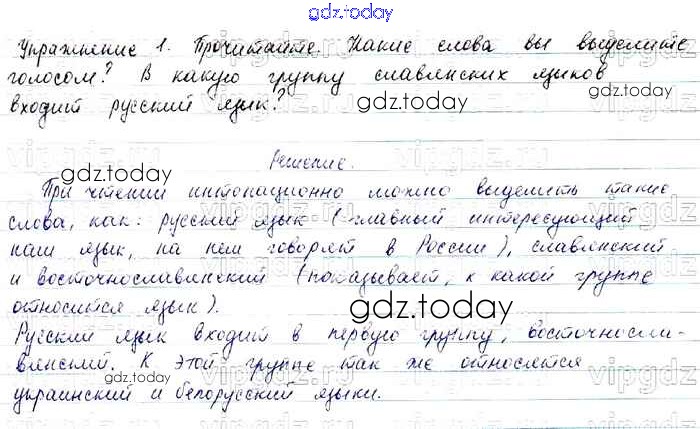 gdz.today
Упражнение 1. Прочитайте. Какие слова вы выделите
голосом? В какую группу славянских языков
gdz.today
gdz.today
входит русский язык?
gdz.today
Решение.
При чтении интонационно можно выделить такие
слова, как: русский язык (главный интересующий
наш язык, на нем говорят в России), славянский
и восточнославянский (показывает, к какой группе
относится язык).
gdz.today
Русский язык входит в первую группу, восточносла-
вянский. К этой группе так же относятся
gdz.today
украинский и белорусский языки.
vipgdz